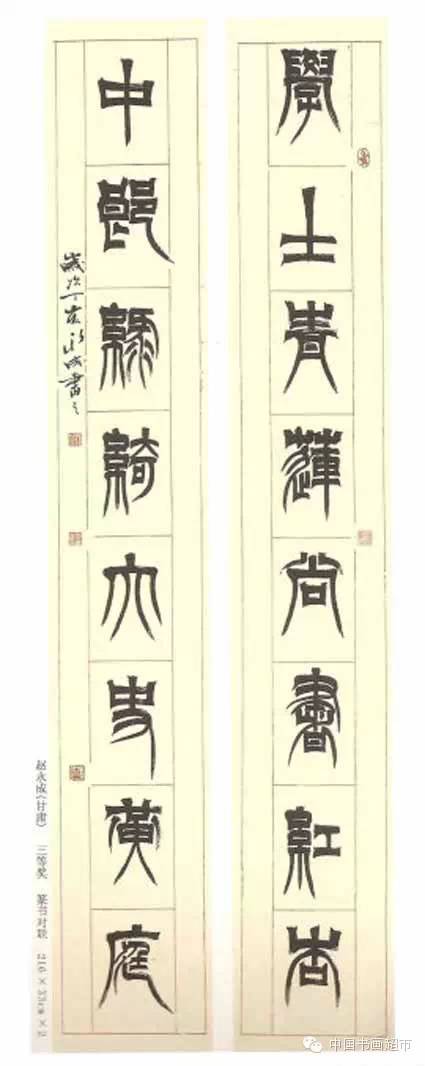 學士青蓮尚書紅杏
中郎綠綺大史黃庭
歲次丁亥永成書
赵永成(甘肃) 三等奖 篆书对联 216×33cm×2
中国书画超市